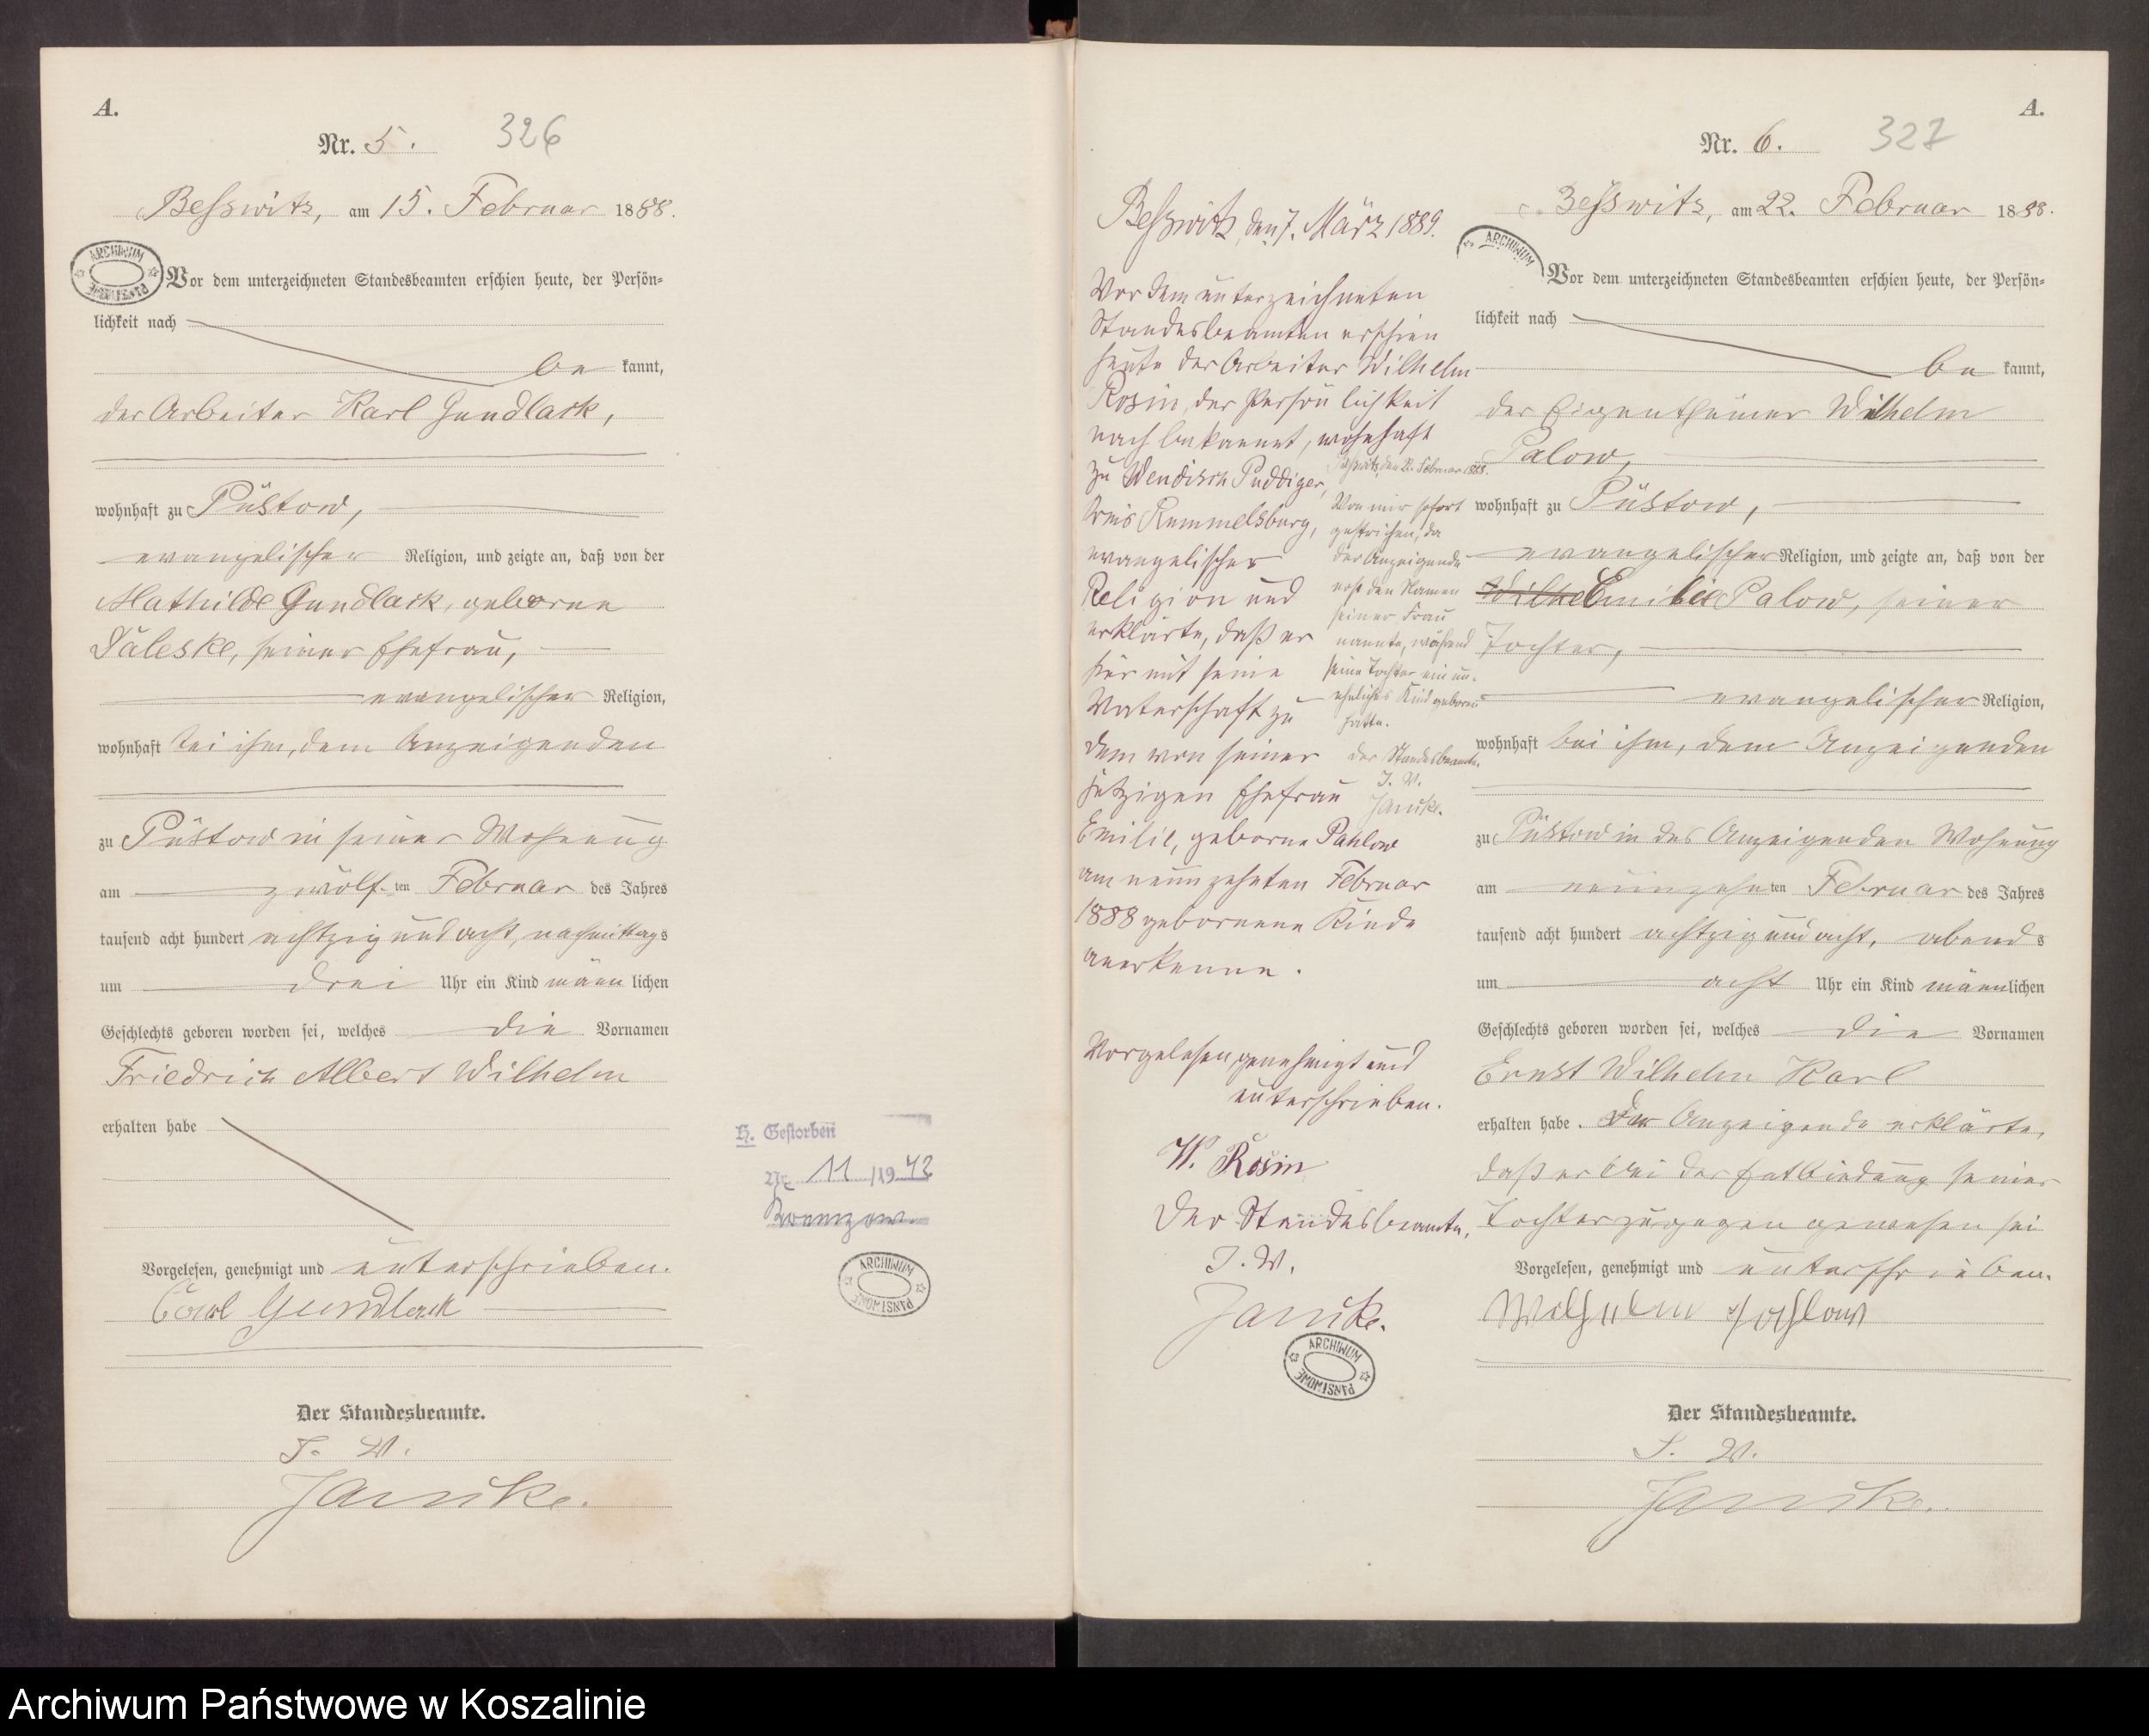 A.
Nr. 5.
326
Beßwitz, am 15. Februar 1888.
ARCHIWUM PAŃSTWOWE
Vor dem unterzeichneten Standesbeamten erschien heute, der Persön-
lichkeit nach
be kannt,
der Arbeiter Karl Gundlack,
wohnhaft zu Püstow,
evangelischer Religion, und zeigte an, daß von der
Mathilde Gundlack, geborene
Päleske, seiner Ehefrau,
evangelischer Religion,
wohnhaft bei ihm, dem Anzeigenden
zu Püstow in seiner Wohnung
am zwölf ten Februar des Jahres
tausend acht hundert achtzig und acht, nachmittags
um drei Uhr ein Kind männ lichen
Geschlechts geboren worden sei, welches die Vornamen
Friedrich Albert Wilhelm
erhalten habe
Vorgelesen, genehmigt und unterschrieben.
Carl Gundlack
Der Standesbeamte.
J. V.
Janike.
H. Gestorben
Nr. 11/1943
ARCHIWUM PAŃSTWOWE
Beßwitz, den 7. März 1889.
Vor dem unterzeichneten
Standesbeamten erschien
heute der Arbeiter Wilhelm
Rosin, der Persönlichkeit
nach bekannt, wohnhaft
zu Wendisch Puddiger,
Kreis Rummelsburg,
evangelischer
Religion und
erklärte, daß er
hiermit seine
Vaterschaft zu
dem von seiner
jetzigen Ehefrau
Emilie, geborne Pahlow
am neunzehnten Februar
1888 geborenen Kinde
anerkenne.
Vorgelesen, genehmigt und
unterschrieben.
W. Rosin
Der Standesbeamte,
J. V.
Janike.
ARCHIWUM PAŃSTWOWE
Beßwitz, den 22. Februar 1888.
Von mir sofort
gestrichen, da
der Anzeigende
erst den Namen
seiner Frau
nannte, während
seine Tochter ein un-
eheliches Kind geboren
hatte.
Der Standesbeamte.
J. V.
Janike.
A.
Nr. 6.
327
Beßwitz, am 22. Februar 1888.
ARCHIWUM
Vor dem unterzeichneten Standesbeamten erschien heute, der Persön-
lichkeit nach
be kannt,
der Eigenthümer Wilhelm
Palow,
wohnhaft zu Püstow,
evangelischer Religion, und zeigte an, daß von der
Emilie Palow, seiner
Tochter,
evangelischer Religion,
wohnhaft bei ihm, dem Anzeigenden
zu Püstow in des Anzeigenden Wohnung
am neunzehn ten Februar des Jahres
tausend acht hundert achtzig und acht, abends
um acht Uhr ein Kind männlichen
Geschlechts geboren worden sei, welches die Vornamen
Ernst Wilhelm Karl
erhalten habe. Der Anzeigende erklärte,
daß er bei der Entbindung seiner
Tochter zugegen gewesen sei
Vorgelesen, genehmigt und unterschrieben.
Wilhelm Pahlow
Der Standesbeamte.
J. V.
Janike.
Archiwum Państwowe w Koszalinie